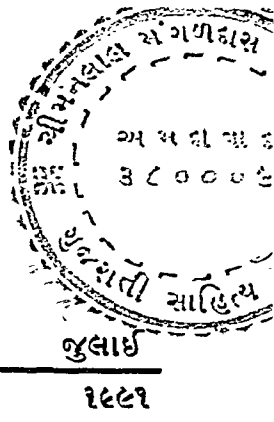 ચીમનલાલ મંગળદાસ
અમદાવાદ
૩૮૦૦૦૬
ગુજરાતી સાહિત્ય
જુલાઈ
૧૯૯૧